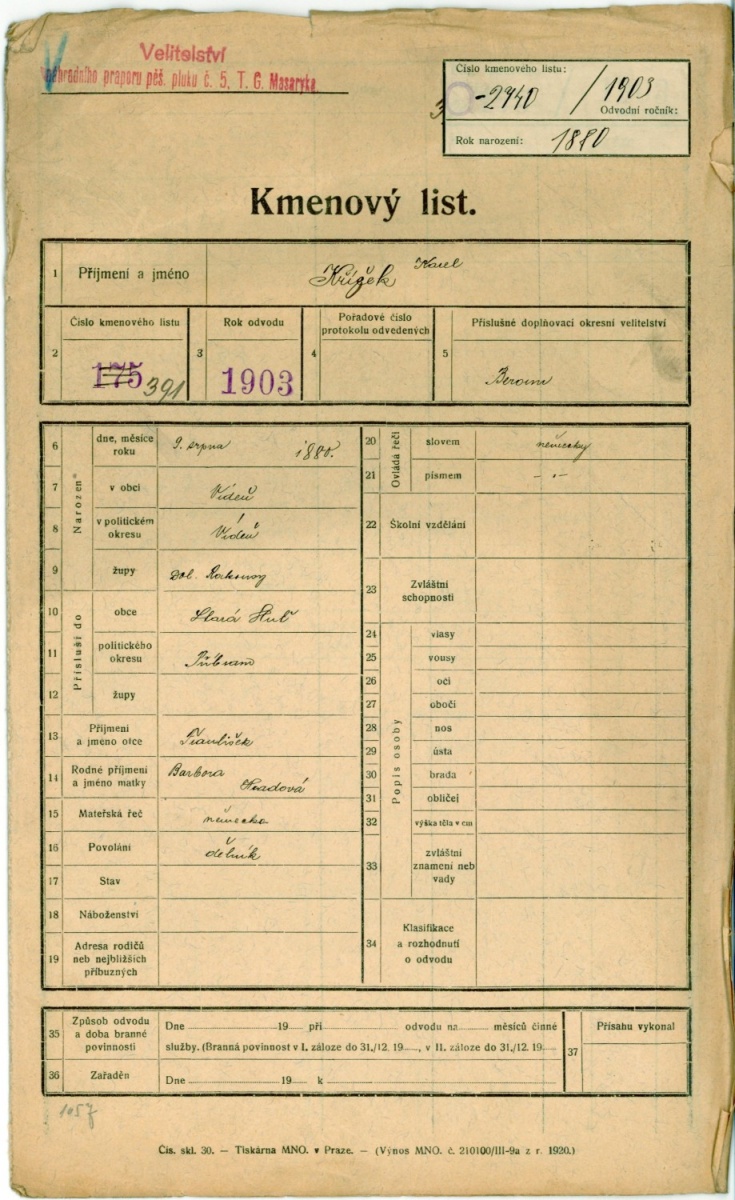 Velitelství
náhradního praporu pěš. pluku č. 5, T. G. Masaryka.
Číslo kmenového listu:
-2740 / 1903
Odvodní ročník:
Rok narození: 1880
Kmenový list.
1 Příjmení a jméno Křížek Karel
Číslo kmenového listu Rok odvodu Pořadové číslo protokolu odvedených Příslušné doplňovací okresní velitelství
2 175 391 3 1903 4 5 Beroun
Narozen*
6 dne, měsíce roku 9. srpna 1880.
7 v obci Vídeň
8 v politickém okresu Vídeň
9 župy Dol. Rakousy
Přísluší do
10 obce Stará Huť
11 politického okresu Příbram
12 župy
13 Příjmení a jméno otce František
14 Rodné příjmení a jméno matky Barbora
15 Mateřská řeč německá
16 Povolání dělník
17 Stav
18 Náboženství
19 Adresa rodičů neb nejbližších příbuzných
Ovládá řeči
20 slovem německy
21 písmem -"-
22 Školní vzdělání
23 Zvláštní schopnosti
Popis osoby
24 vlasy
25 vousy
26 oči
27 obočí
28 nos
29 ústa
30 brada
31 obličej
32 výška těla v cm
33 zvláštní znamení neb vady
34 Klasifikace a rozhodnutí o odvodu
35 Způsob odvodu a doba branné povinnosti Dne 19 při odvodu na měsíců činné
služby. (Branná povinnost v I. záloze do 31./12. 19 , v II. záloze do 31./12. 19
36 Zařaděn Dne 19 k
37 Přísahu vykonal
1057
Čís. skl. 30. — Tiskárna MNO. v Praze. — (Výnos MNO. č. 210100/III-9a z r. 1920.)